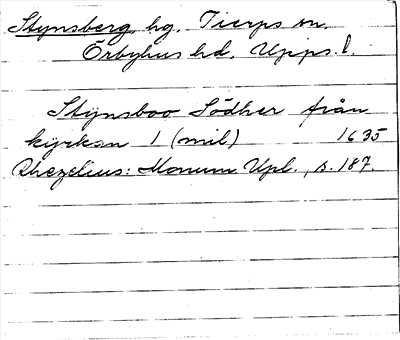 Stynsberg, hg. Tierps sn.
Örbyhus hd, Upps. l.
Stÿnsboo Södher från
kÿrkan 1 (mil) 1635
Rhezelius: Monum Upl., s. 187.